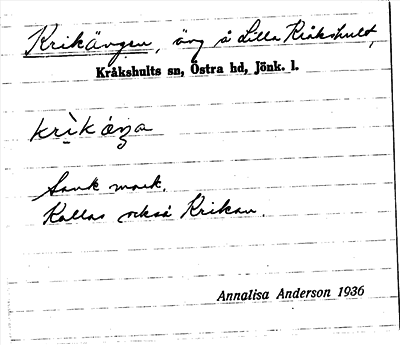 Krikängen, äng å Lilla Kråkshult,
Kråkshults sn, Östra hd, Jönk. l.
Sank mark.
Kallas också Krikan.
Annalisa Anderson 1936